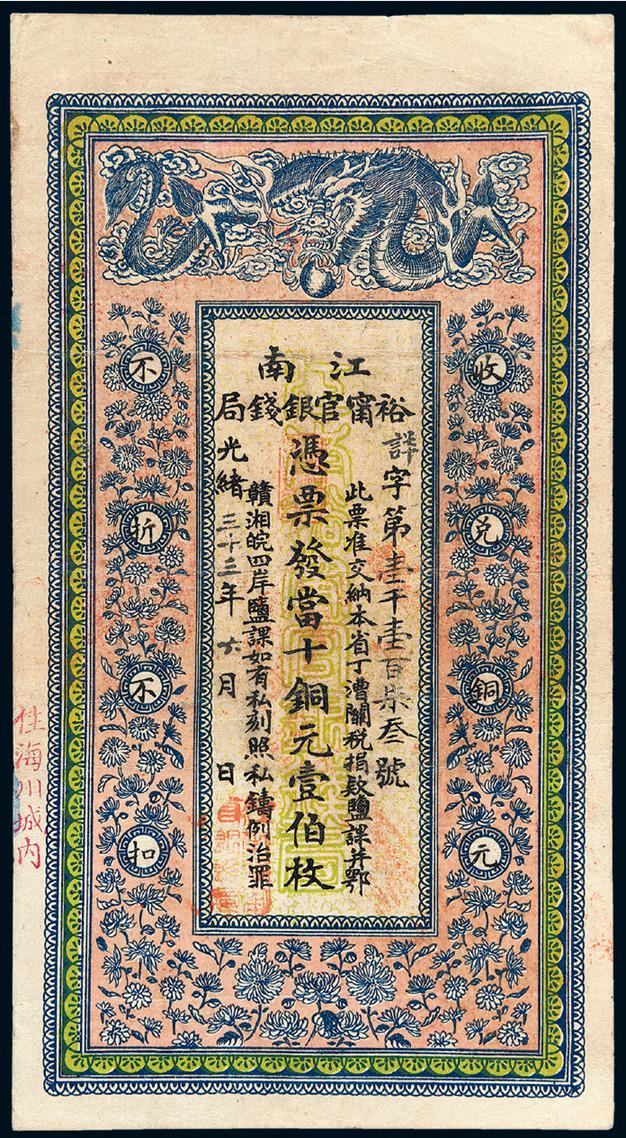 江南
裕甯官銀錢局
詳字第壹千壹百柒叁號
此票准交納本省丁漕關稅捐欵鹽課并鄂
憑票發當十銅元壹伯枚
贛湘皖四岸鹽課如有私刻照私鑄例治罪
光緒三十二年六月 日
收兌銅元
不折不扣
住海川城内